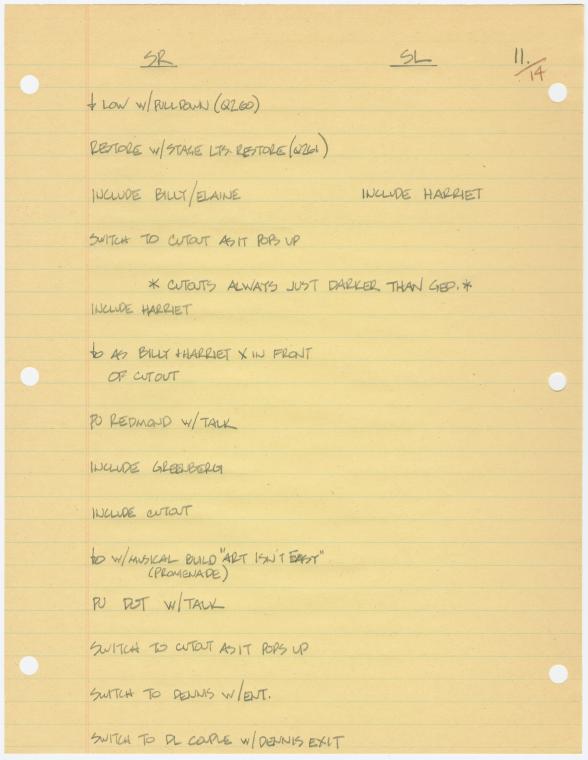 SR SL 11./14
↓ LOW W/PULLDOWN (Q260)
RESTORE W/STAGE LTS. RESTORE (Q261)
INCLUDE BILLY/ELAINE INCLUDE HARRIET
SWITCH TO CUTOUT AS IT POPS UP
* CUTOUTS ALWAYS JUST DARKER THAN GEO. *
INCLUDE HARRIET
↓O AS BILLY + HARRIET X IN FRONT
OF CUTOUT
PU REDMOND W/TALK
INCLUDE GREENBERG
INCLUDE CUTOUT
↓O W/MUSICAL BUILD "ART ISN'T EASY"
(PROMENADE)
PU DOT W/TALK
SWITCH TO CUTOUT AS IT POPS UP
SWITCH TO DENNIS W/ENT.
SWITCH TO DL COUPLE W/DENNIS EXIT